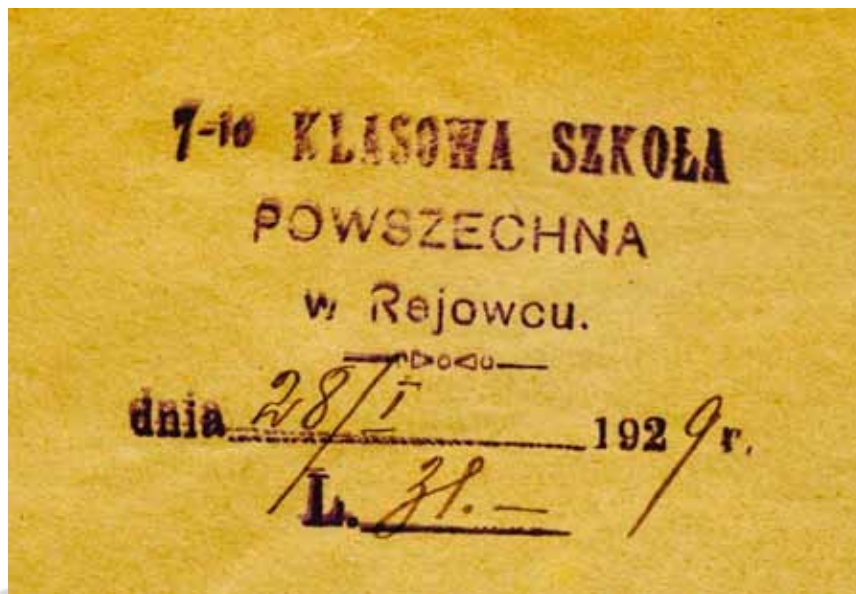 7-io KLASOWA SZKOŁA
POWSZECHNA
w Rejowcu.
dnia 28/I 1929 r.
L. 31.—